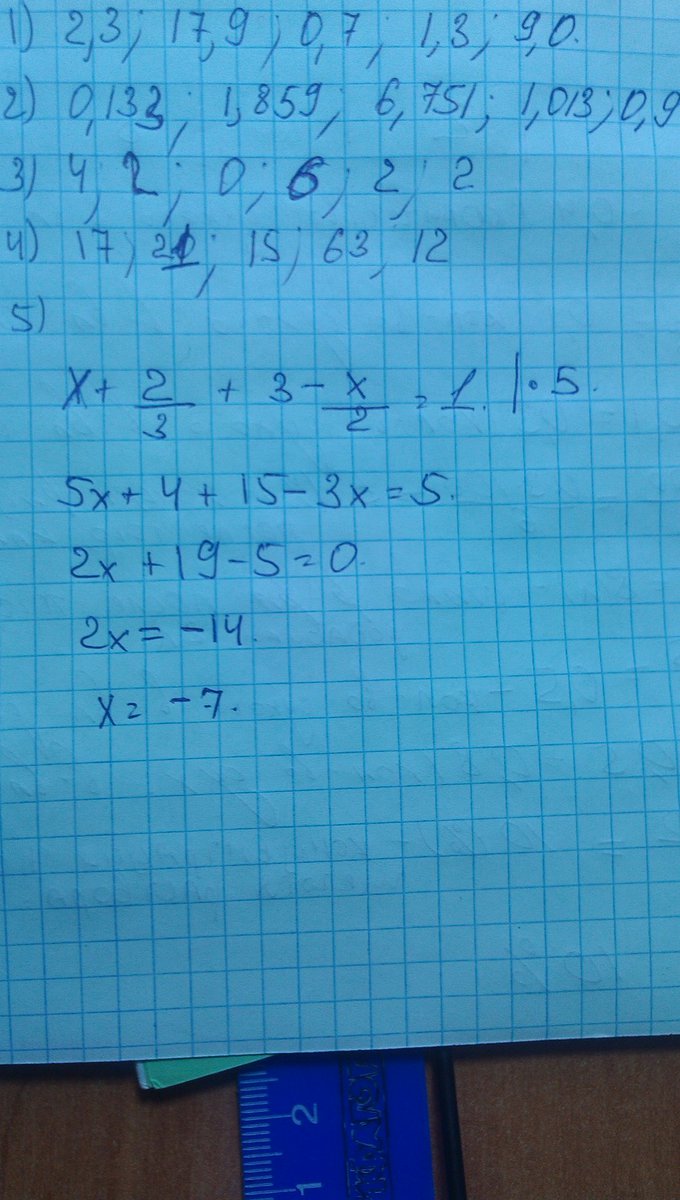 1) 2,3; 17,9; 0,7; 1,3; 9,0.
2) 0,133; 1,859; 6,751; 1,013; 0,9
3) 4; 2; 0; 6; 2; 2
4) 17; 21; 15; 63; 12
5)
x + 2/3 + 3 - x/2 = 1. |· 5.
5x + 4 + 15 - 3x = 5.
2x + 19 - 5 = 0.
2x = -14.
x = -7.
2
1